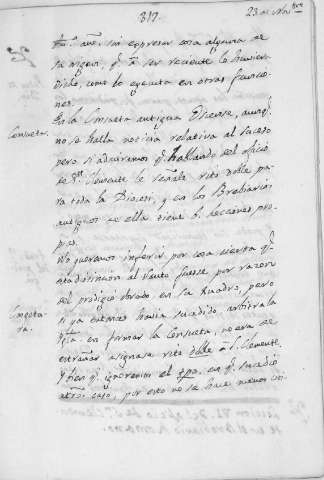 317.
23 de Nov.bre
sin expresar cosa alguna de
su origen, q.e a ser reciente lo huviera
dicho, como lo egecuta en otras funcio
nes.
Consueta.
En la Consueta antigua Oscense, aunq.e
no se halla noticia relativa al suceso
pero si advertimos q.e hablando del oficio
de S.n Clemente le señala rito doble pa
ra toda la Diocesi, y en los Breviarios
antiguos de ella tiene 6. lecciones pro
pias.
Congetu
ra.
No queremos inferir por cosa cierta q.e
esta distincion al Santo fuesse por razon
del prodigio obrado en su quadro, pero
si ya entonces havia sucedido,
en formar la Consueta, no era de
estrañar asignase rito doble a S. Clemente.
Y bien q.e ignoremos el tpo. en q.e sucedió
caso, por esto no se hace menos